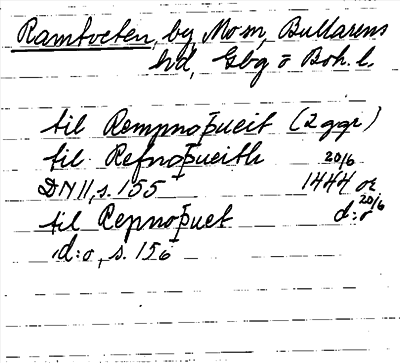 Ramtveten, by Mo sn, Bullarens
hd, Gbg o Boh. l.
til Rempnoþueit (2 ggr)
til Refnoþueith 20/6
DN II, s. 155 1444 or
til Repnoþuet d:o 20/6
d:o, s. 156